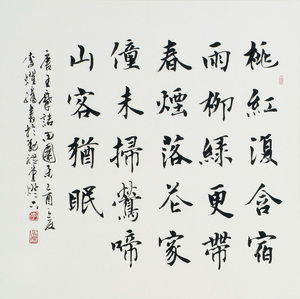 桃紅復含宿
雨柳綠更帶
春煙落花家
僮未掃鶯啼
山客猶眠
唐王摩詰田園樂乙酉之夏
李耀書於